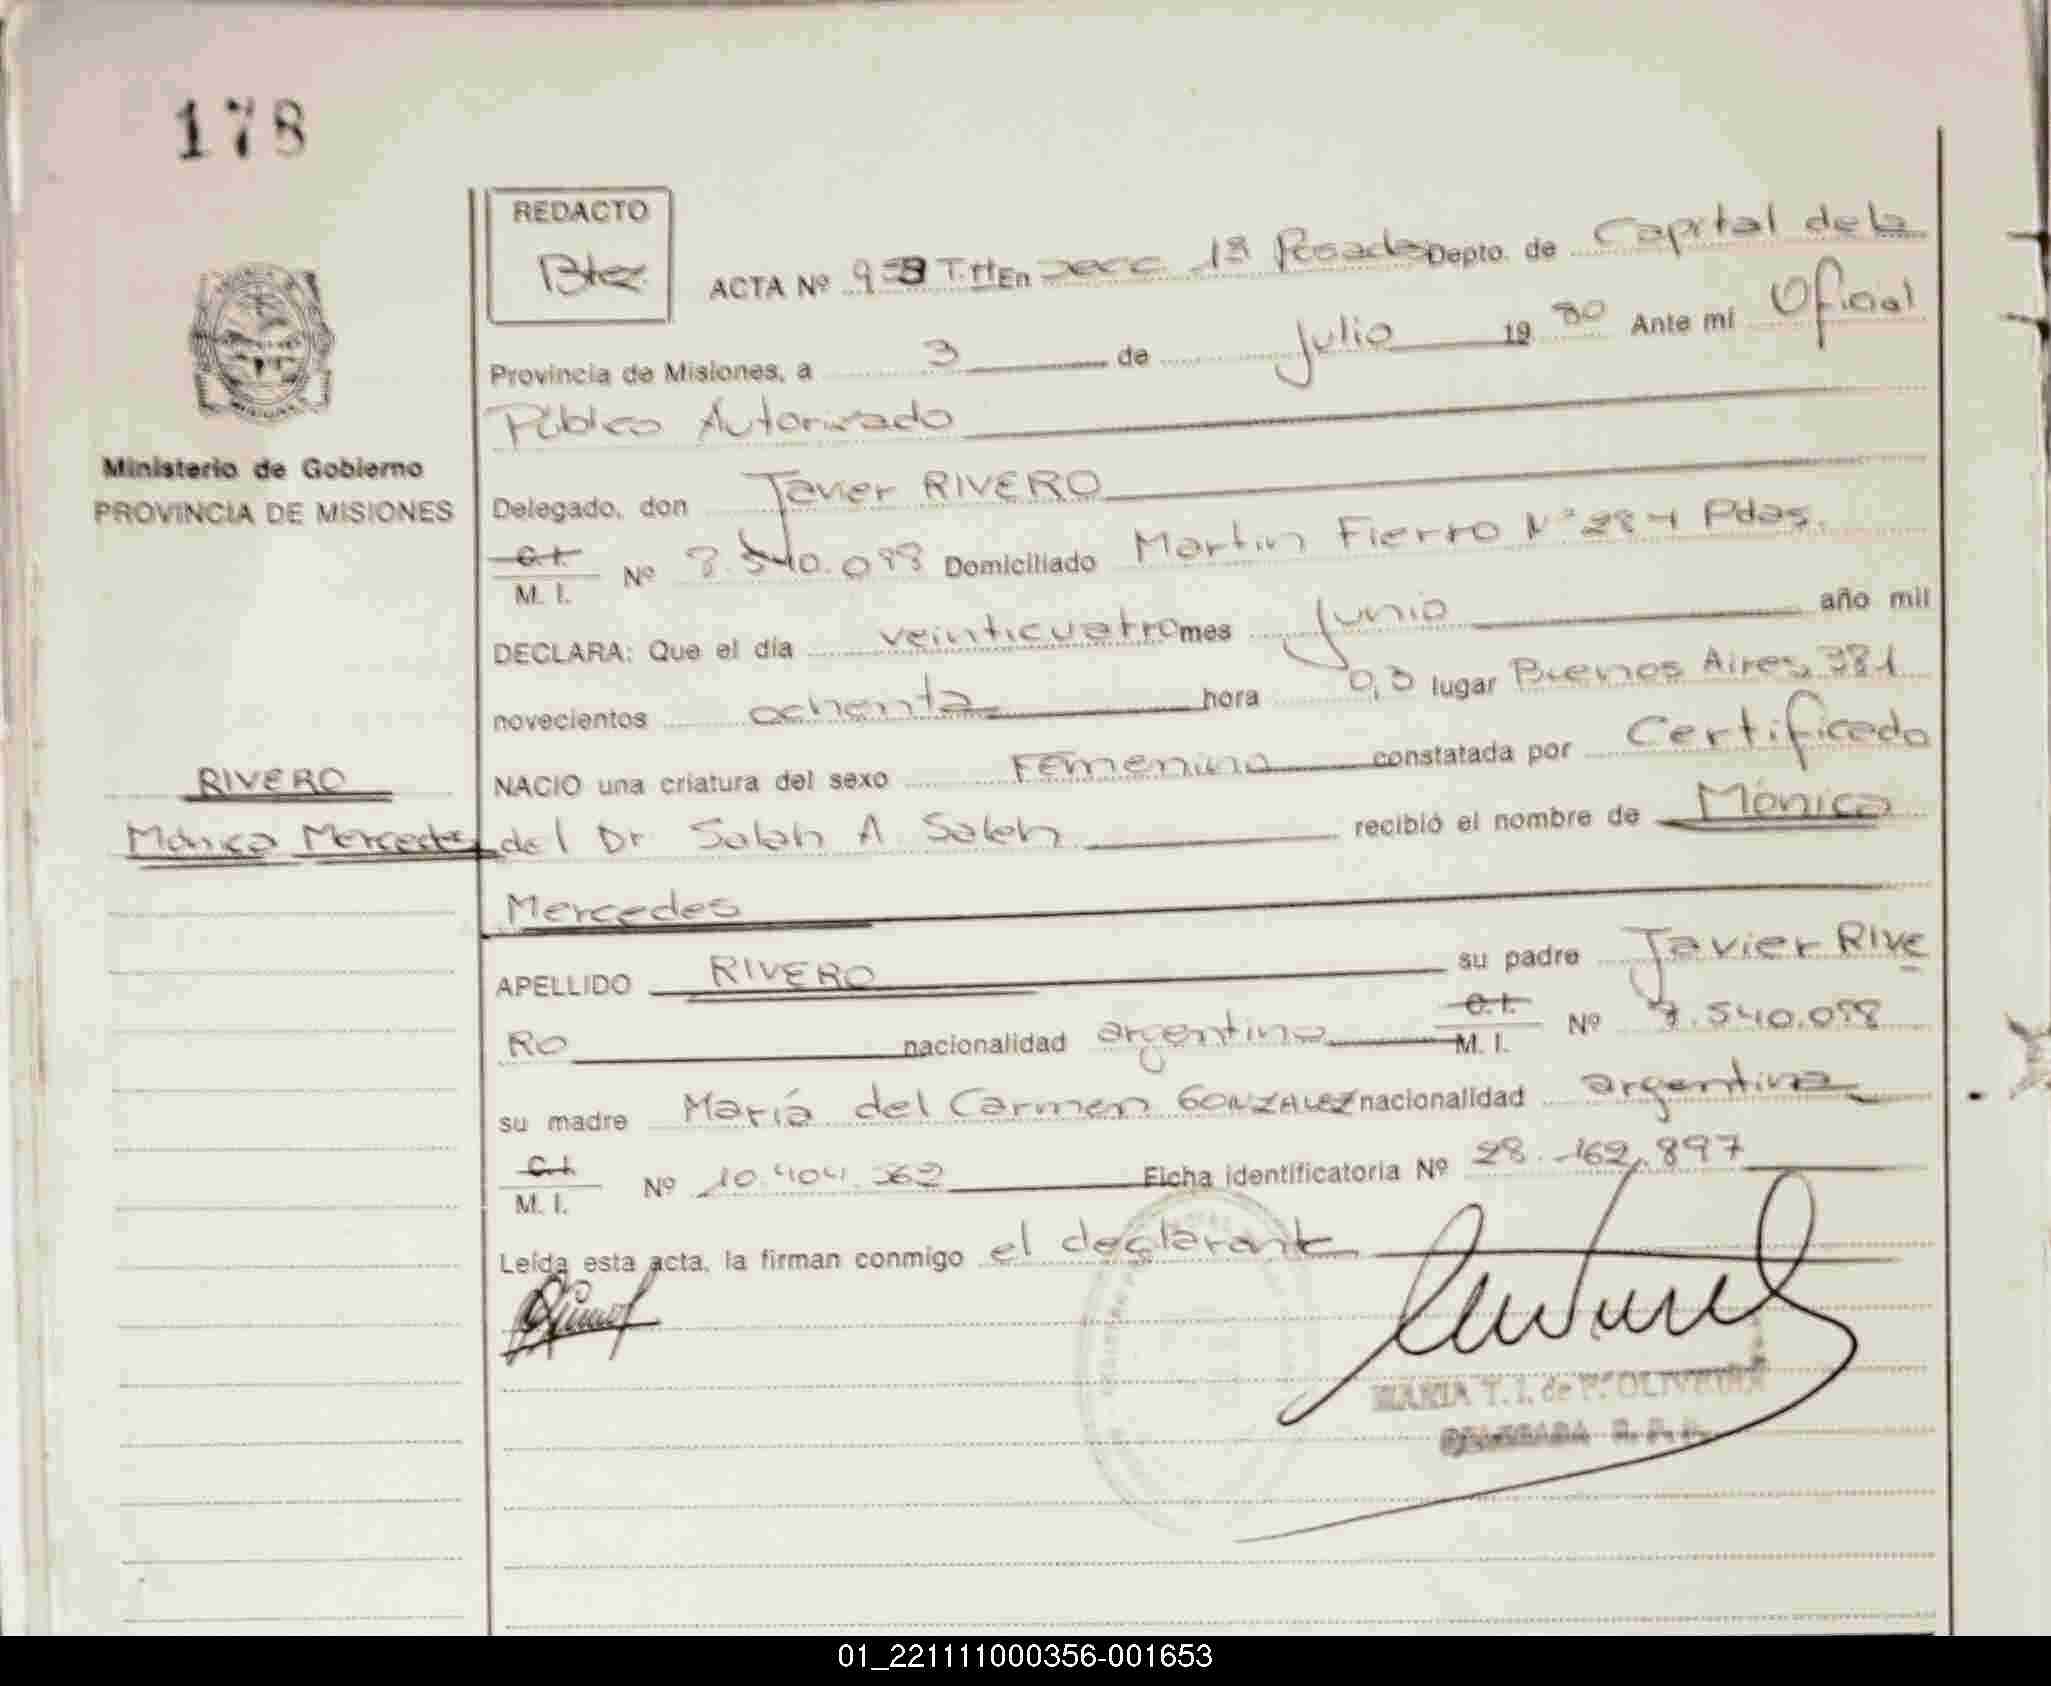 178
REDACTO
Btez
ACTA Nº T.II En secc 1ª Posadas Depto. de Capital de la
Provincia de Misiones, a 3 de Julio 19 80 Ante mí Oficial
Público Autorizado
Ministerio de Gobierno
PROVINCIA DE MISIONES
Delegado, don Javier RIVERO
C.I.
M. I. Nº Domiciliado Martin Fierro Nº 284 Pdas.
DECLARA: Que el día veinticuatro mes Junio año mil
novecientos ochenta hora lugar Buenos Aires, 381
RIVERO
NACIO una criatura del sexo Femenino constatada por Certificado
Mónica Mercedes
del Dr Saleh A Saleh recibió el nombre de Mónica
Mercedes
APELLIDO RIVERO su padre Javier RIVE
RO nacionalidad argentina C.I. M. I. Nº
su madre María del Carmen GONZALEZ nacionalidad argentina
C.I.
M. I. Nº 10.404.362 Ficha identificatoria Nº 28.162.897
Leída esta acta, la firman conmigo el declarante
MARIA T. I. de P. OLIVEIRA
DELEGADA R. P. P.
01_221111000356-001653